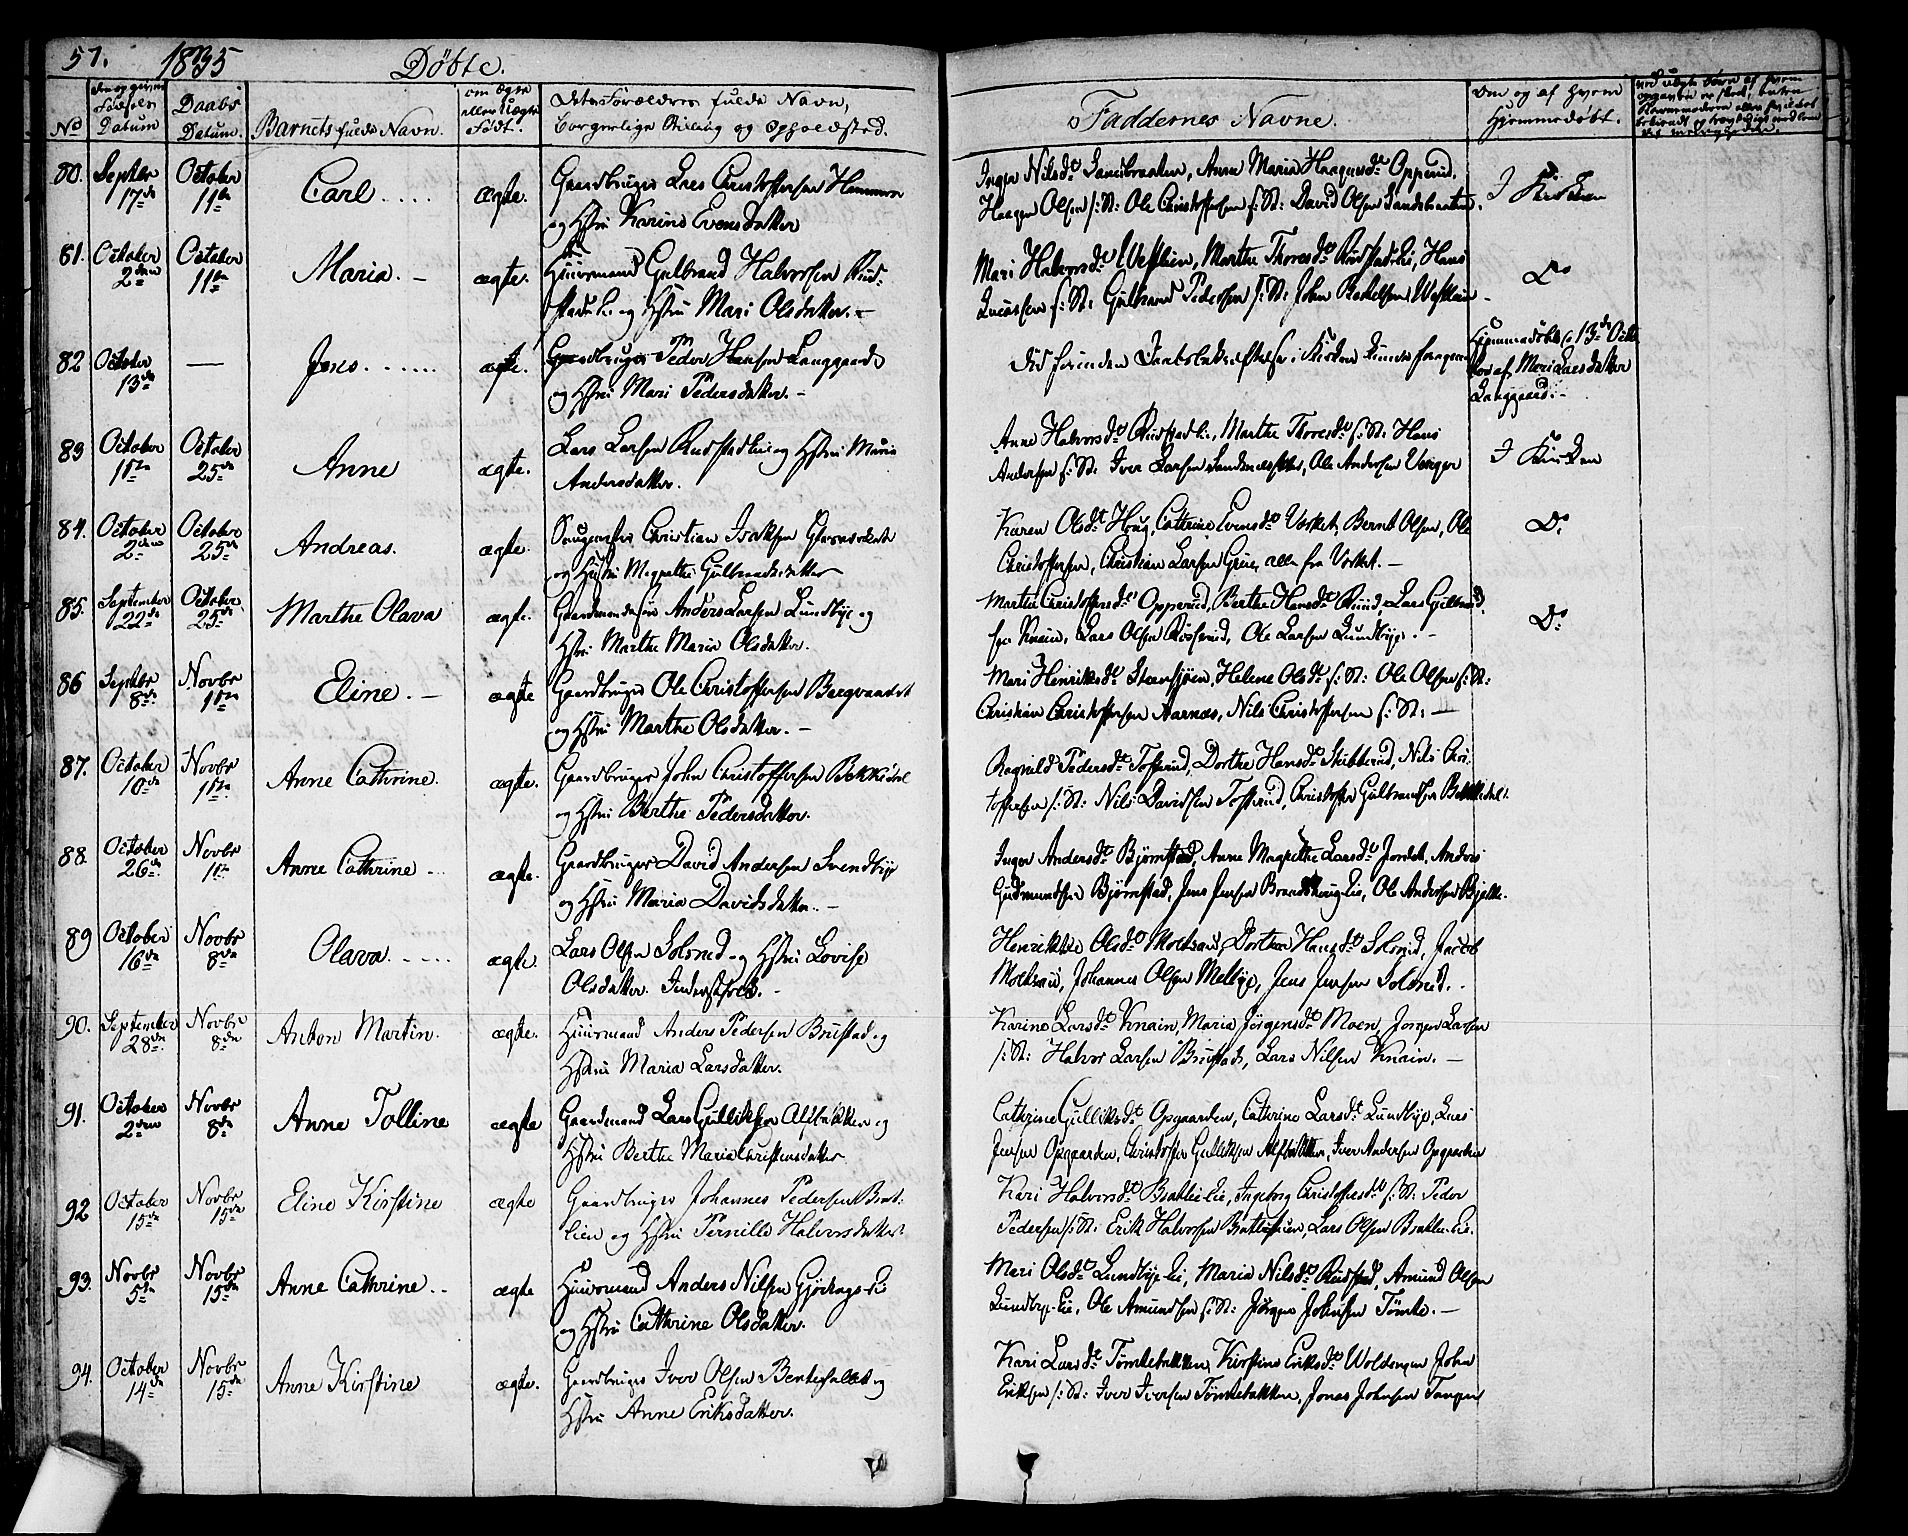 57. 1835 Døbte.
No
Fødsels Datum
Daabs Datum.
Barnets fulde Navn.
om Ægte eller Uægte Født.
Forældres fulde Navn,
borgerlige Stilling og Opholdssted.
Faddernes Navne.
Om og af hvem Hjemmedøbt.
80. Septbr 17de October 11te Carl . . . . ægte. Gaardbruger Lars Christoffersen Hammern
og Hstru Karine Evensdatter
Inger Nilsdt Sandbraaten, Anne Maria Haagensdt Opperud,
Haagen Olsen s: St: Ole Christoffersen s: St: David Olsen Sandbraaten.
I Kirken
81. October 2den October 11te Maria. – ægte. Huusmand Gulbrand Halvorsen Rud-
stadeie og Hstru Mari Olsdatter. –
Mari Halvorsdt Westlien, Marthe Thoresdt Rudstadeie, Hans
s: St: Gulbrand Pedersen s: St: John Westlien –
Do
82 October 13de — Jens . . . . . . ægte. Gaardbruger Peder Hansen Langgaard
og Hstru Mari Pedersdatter. –
Død forinden Daabsbekræftelse i Kirken kunde foregaae
Hjemmedøbt 13de Octbr
af Mari Larsdatter
Langgaard. –
83 October 11te October 25de Anne ægte. Lars Larsen Rudstadeie og Hstru Maria
Andersdatter.
Anne Halvorsdt Rudstadeie, Marthe Thoresdt s: St: Hans
Andersen s: St: Iver Larsen, Ole Andersen
I Kirken
84. October 2den October 25de Andreas. ægte. Christian Isaksen
og Hustru Magrethe Gulbrandsdatter
Karen Olsdt Houg, Cathrine Evensdt Værket, Bernt Olsen, Ole
Christoffersen, Christian Larsen, alle fra Værket. –
Do
85. September 22de October 25de Marthe Olava ægte. Gaardmandssøn Anders Larsen Lundbye og
Hstru Marthe Maria Olsdatter.
Marthe Christoffersdt Opperud, Berthe Hansdt Ruud, Lars Gulbrand.
fra Knain, Lars Olsen Rosserud, Ole Larsen Lundbye. –
Do
86 Septbr 8de Novbr 1ste Eline. – ægte Gaardbruger Ole Christoffersen Bergvandet
og Hstru Marthe Olsdatter. –
Mari Henriksdt Storsjøen, Helene Olsdt s: St: Ole Olsen s: St:
Christian Christoffersen Aarnæs, Nils Christoffersen s: St: —
87. October 10de Novbr 1ste Anne Cathrine. ægte. Gaardbruger John Christoffersen Bekkedal
og Hstru Berthe Pedersdatter.
Ragnild Pedersdt Tosterud, Dorthe Hansdt Stubberud, Nils Chri-
stoffersen s: St: Nils Davidsen Tosterud, Christoffer Gulbrandsen Bekkedal.
88. October 26de Novbr 1ste Anne Cathrine . . . ægte. Gaardbruger David Andersen Svendbye
og Hstru Maria Davidsdatter. –
Inger Andersdt Bjørnstad, Anne Magrethe Larsdt Jordet, Andrés
Gudmundsen Bjørnstad, Jens Jensen Brandshougeie, Ole Andersen Bjerke.
89 October 16de Novbr 8de Olava. . . . . . ægte. Lars Olsen Solsrud og Hstru Lovise
Olsdatter.
Henrikke Olsdt Molteni, Dorthea Hansdt Solsrud, Jacob
Johannes Olsen Melbye, Jens Jensen Solsrud. .
90. September 28de Novbr 8de Anton Martin. ægte. Huusmand Anders Pedersen Brustad og
Hstru Maria Larsdatter.
Karine Larsdt Knain, Maria Jørgensdt Moen, Jørgen Larsen
s: St: Halvor Larsen Brustad, Lars Nilsen Knain. —
91. October 2den Novbr 8de Anne Polline ægte Gaardmand Lars Gulliksen Alfbakken og
Hstru Berthe Maria Christensdatter
Cathrine Gulliksdt Opgaarden, Cathrine Larsdt Lundbye, Lars
Jensen Opgaarden, Christoffer Gulliksen Alfbakken, Iver Andersen Opgaarden
92 October 15de Novbr 15de Eline Kirstine ægte Gaardbruger Johannes Pedersen Brat-
lien og Hstru Pernille Halvorsdatter.
Kari Halvorsdt Bratlieeie, Ingeborg Christoffersdt s: St: Peder
Pedersen s: St: Erik Halvorsen, Lars Olsen Bratlieeie.
93. Novbr 5te Novbr 15de Anne Cathrine . . ægte Huusmand Anders Nilsen Gjørengs-Eie
og Hstru Cathrine Olsdatter.
Mari Olsdt Lundbye-Eie, Maria Nilsdt Rudstad, Amund Olsen
Lundbye-Eie, Ole Amundsen s: St: Jørgen Johnsen Tømte. —
94. October 14de Novbr 15de Anne Kirstine ægte. Gaardbruger Iver Olsen Bentefallet og
Hstru Anne Eriksdatter.
Kari Larsdt Tømtebakken, Kirstine Eriksdt Woldengen, John
Eriksen s: St: Iver Iversen Tømtebakken, Jonas Johnsen Tangen